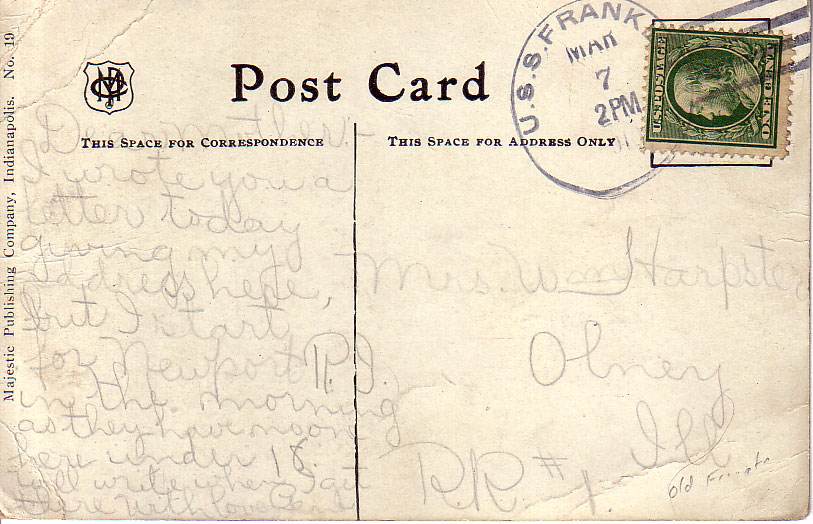 Majestic Publishing Company, Indianapolis. No. 19
Post Card
THIS SPACE FOR CORRESPONDENCE
THIS SPACE FOR ADDRESS ONLY
U.S.S. FRANK
MAR
7
2PM
U.S. POSTAGE
ONE CENT
Dear mother.-
I wrote you a
letter today
giving my
address here,
but I start
for Newport R.I.
in the morning
as they have no room
here under 18.
will write when I get
there with love
Mrs. Wm Harpster
Olney
Ill
R.R. #1.
Old